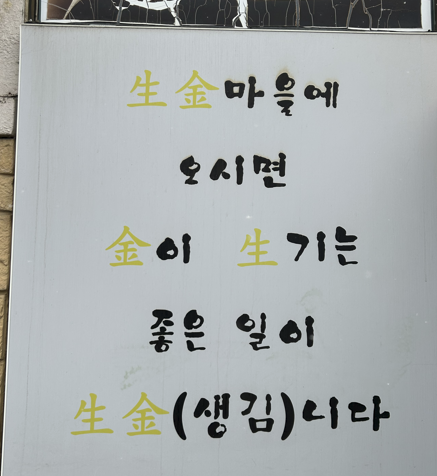 生金마을에
오시면
金이 生기는
좋은 일이
生金(생김)니다